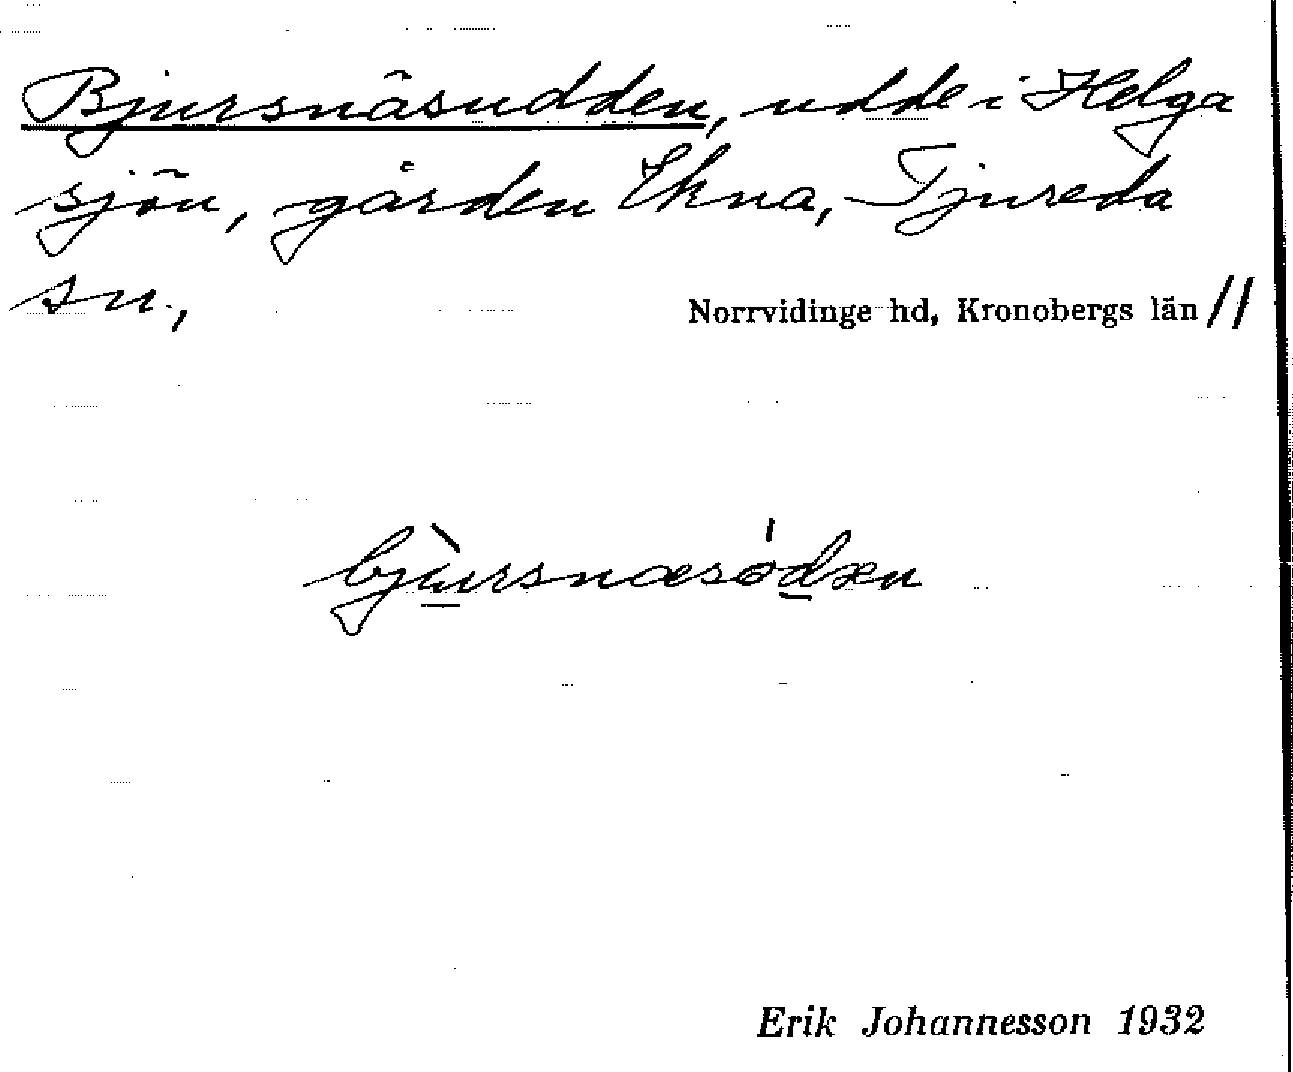 Bjursnäsudden, udde i Helga
sjön, gården Ekna, Tjureda
sn.,
Norrvidinge hd, Kronobergs län //
bjùrsnæsódæn
Erik Johannesson 1932